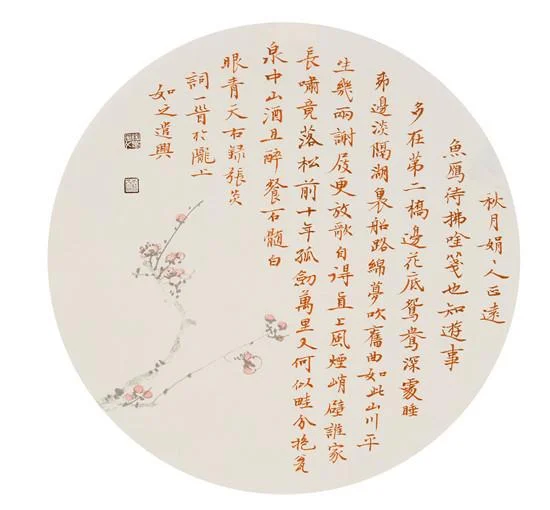 秋月娟〻人正遠
魚鴈待拂唫箋也知遊事
多在第二橋邊花底鴛鴦深處睡
邊淡隔湖裏船路綿夢吹舊曲如此山川平
生幾兩謝屐更放歌自得直上風煙峭壁誰家
長嘯竟落松前十年孤劍萬里又何似畦分抱瓮
泉中山酒且醉餐石髓白
眼青天右録張炎
詞一首於隴上
如之遣興